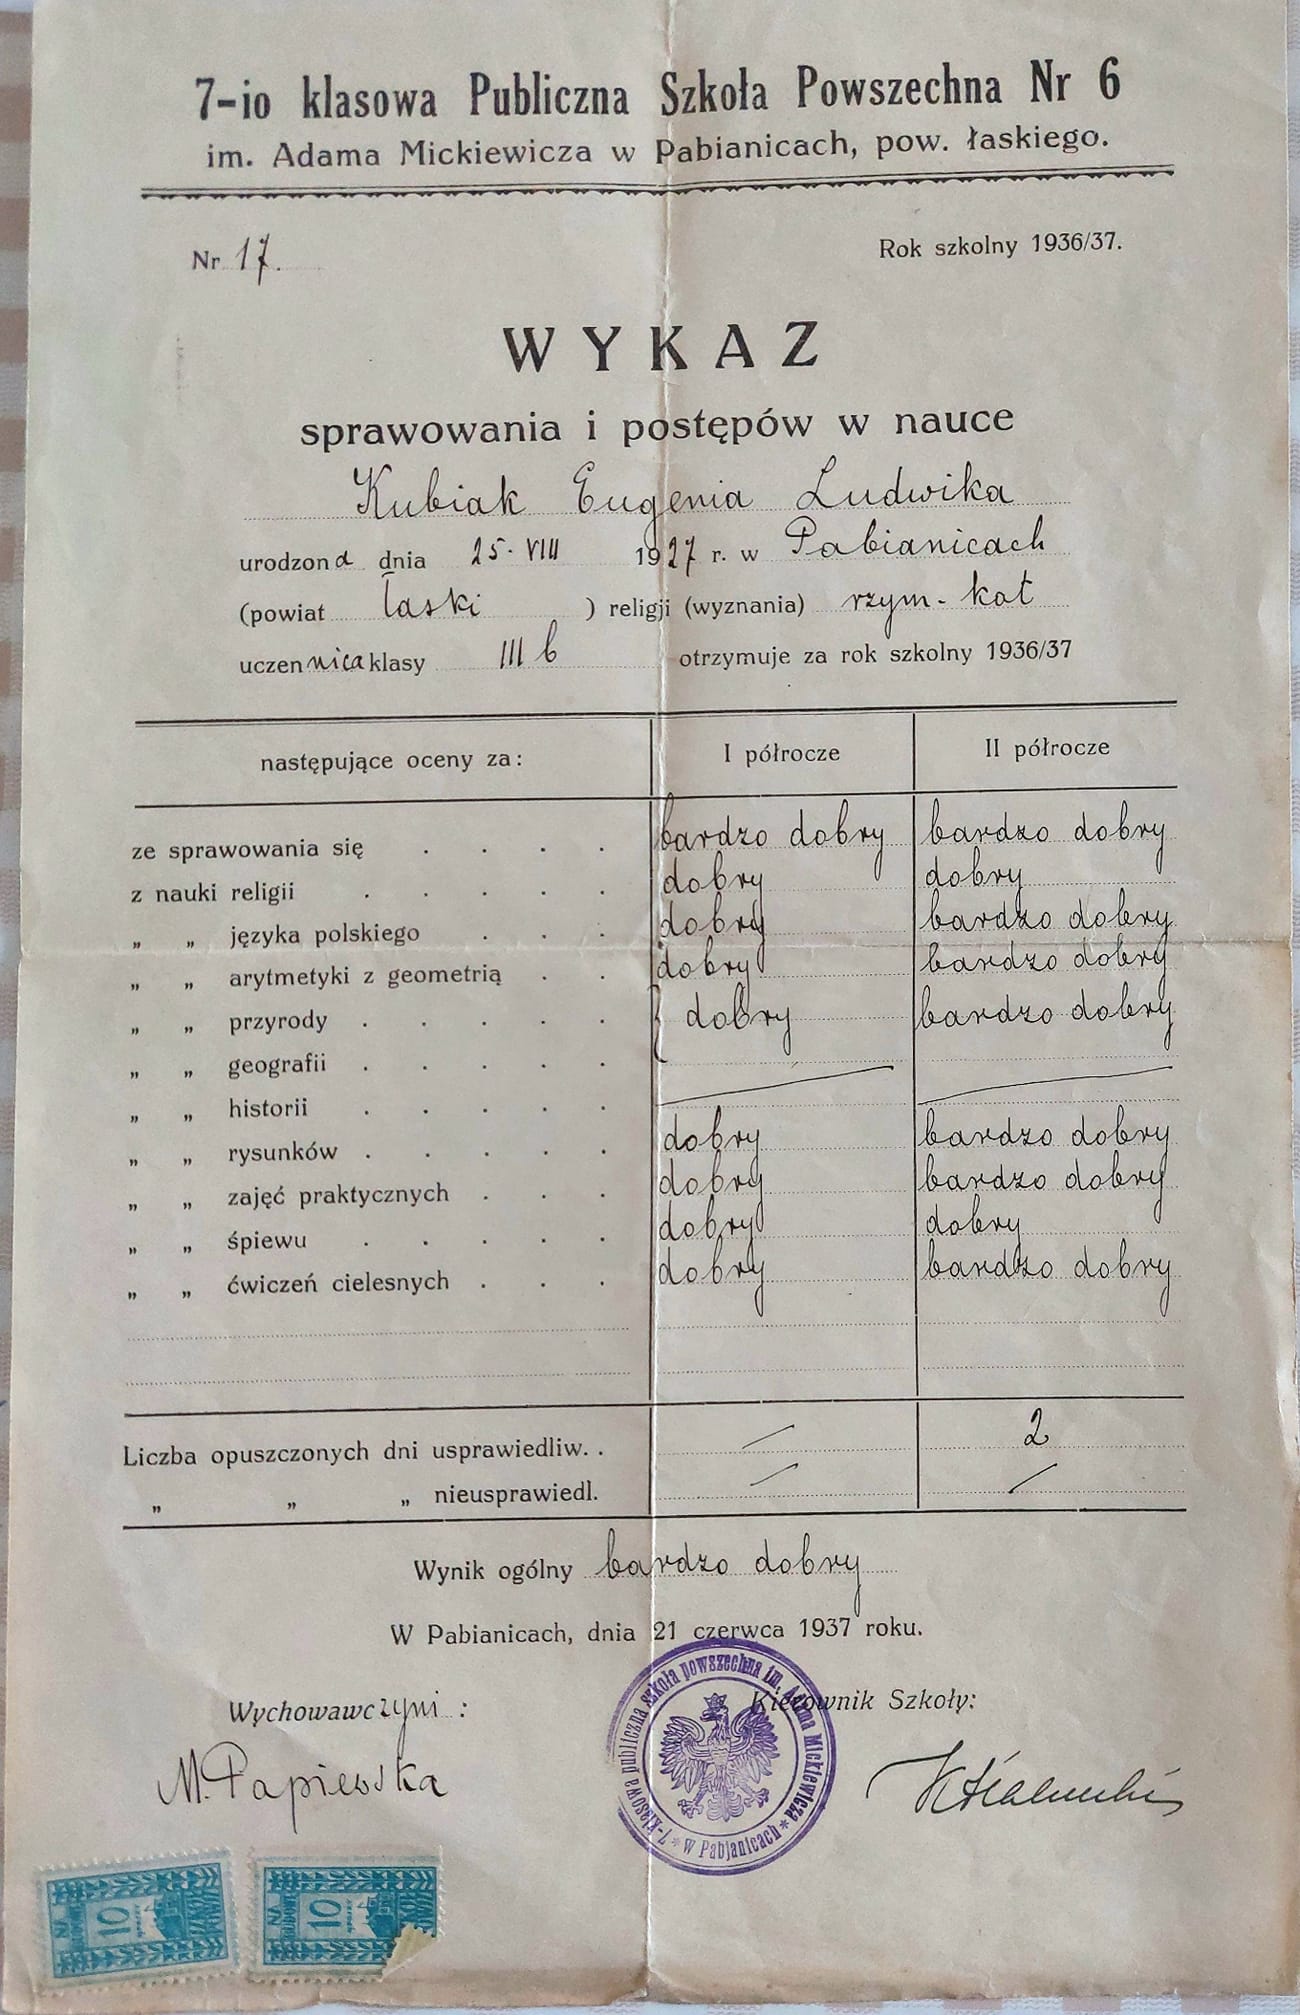 7-io klasowa Publiczna Szkoła Powszechna Nr 6
im. Adama Mickiewicza w Pabianicach, pow. łaskiego.
Nr 17. Rok szkolny 1936/37.
WYKAZ
sprawowania i postępów w nauce
Kubiak Eugenia Ludwika
urodzona dnia 25. VIII 1927 r. w Pabianicach
(powiat łaski ) religji (wyznania) rzym.-kat
uczennica klasy III b otrzymuje za rok szkolny 1936/37
następujące oceny za: I półrocze II półrocze
ze sprawowania się . . . . bardzo dobry bardzo dobry
z nauki religii . . . . . dobry dobry
„ „ języka polskiego . . . dobry bardzo dobry
„ „ arytmetyki z geometrią . . dobry bardzo dobry
„ „ przyrody . . . . . { dobry bardzo dobry
„ „ geografii . . . . .
„ „ historii . . . . .
„ „ rysunków . . . . . dobry bardzo dobry
„ „ zajęć praktycznych . . . dobry bardzo dobry
„ „ śpiewu . . . . . dobry dobry
„ „ ćwiczeń cielesnych . . . dobry bardzo dobry
Liczba opuszczonych dni usprawiedliw. . / 2
„ „ „ nieusprawiedl. / /
Wynik ogólny bardzo dobry
W Pabianicach, dnia 21 czerwca 1937 roku.
Wychowawczyni : Kierownik Szkoły:
M. Papiewska
7-klasowa publiczna szkoła powszechna im. Adama Mickiewicza * w Pabjanicach *
NA 10 GROSZY
NA 10 GROSZY